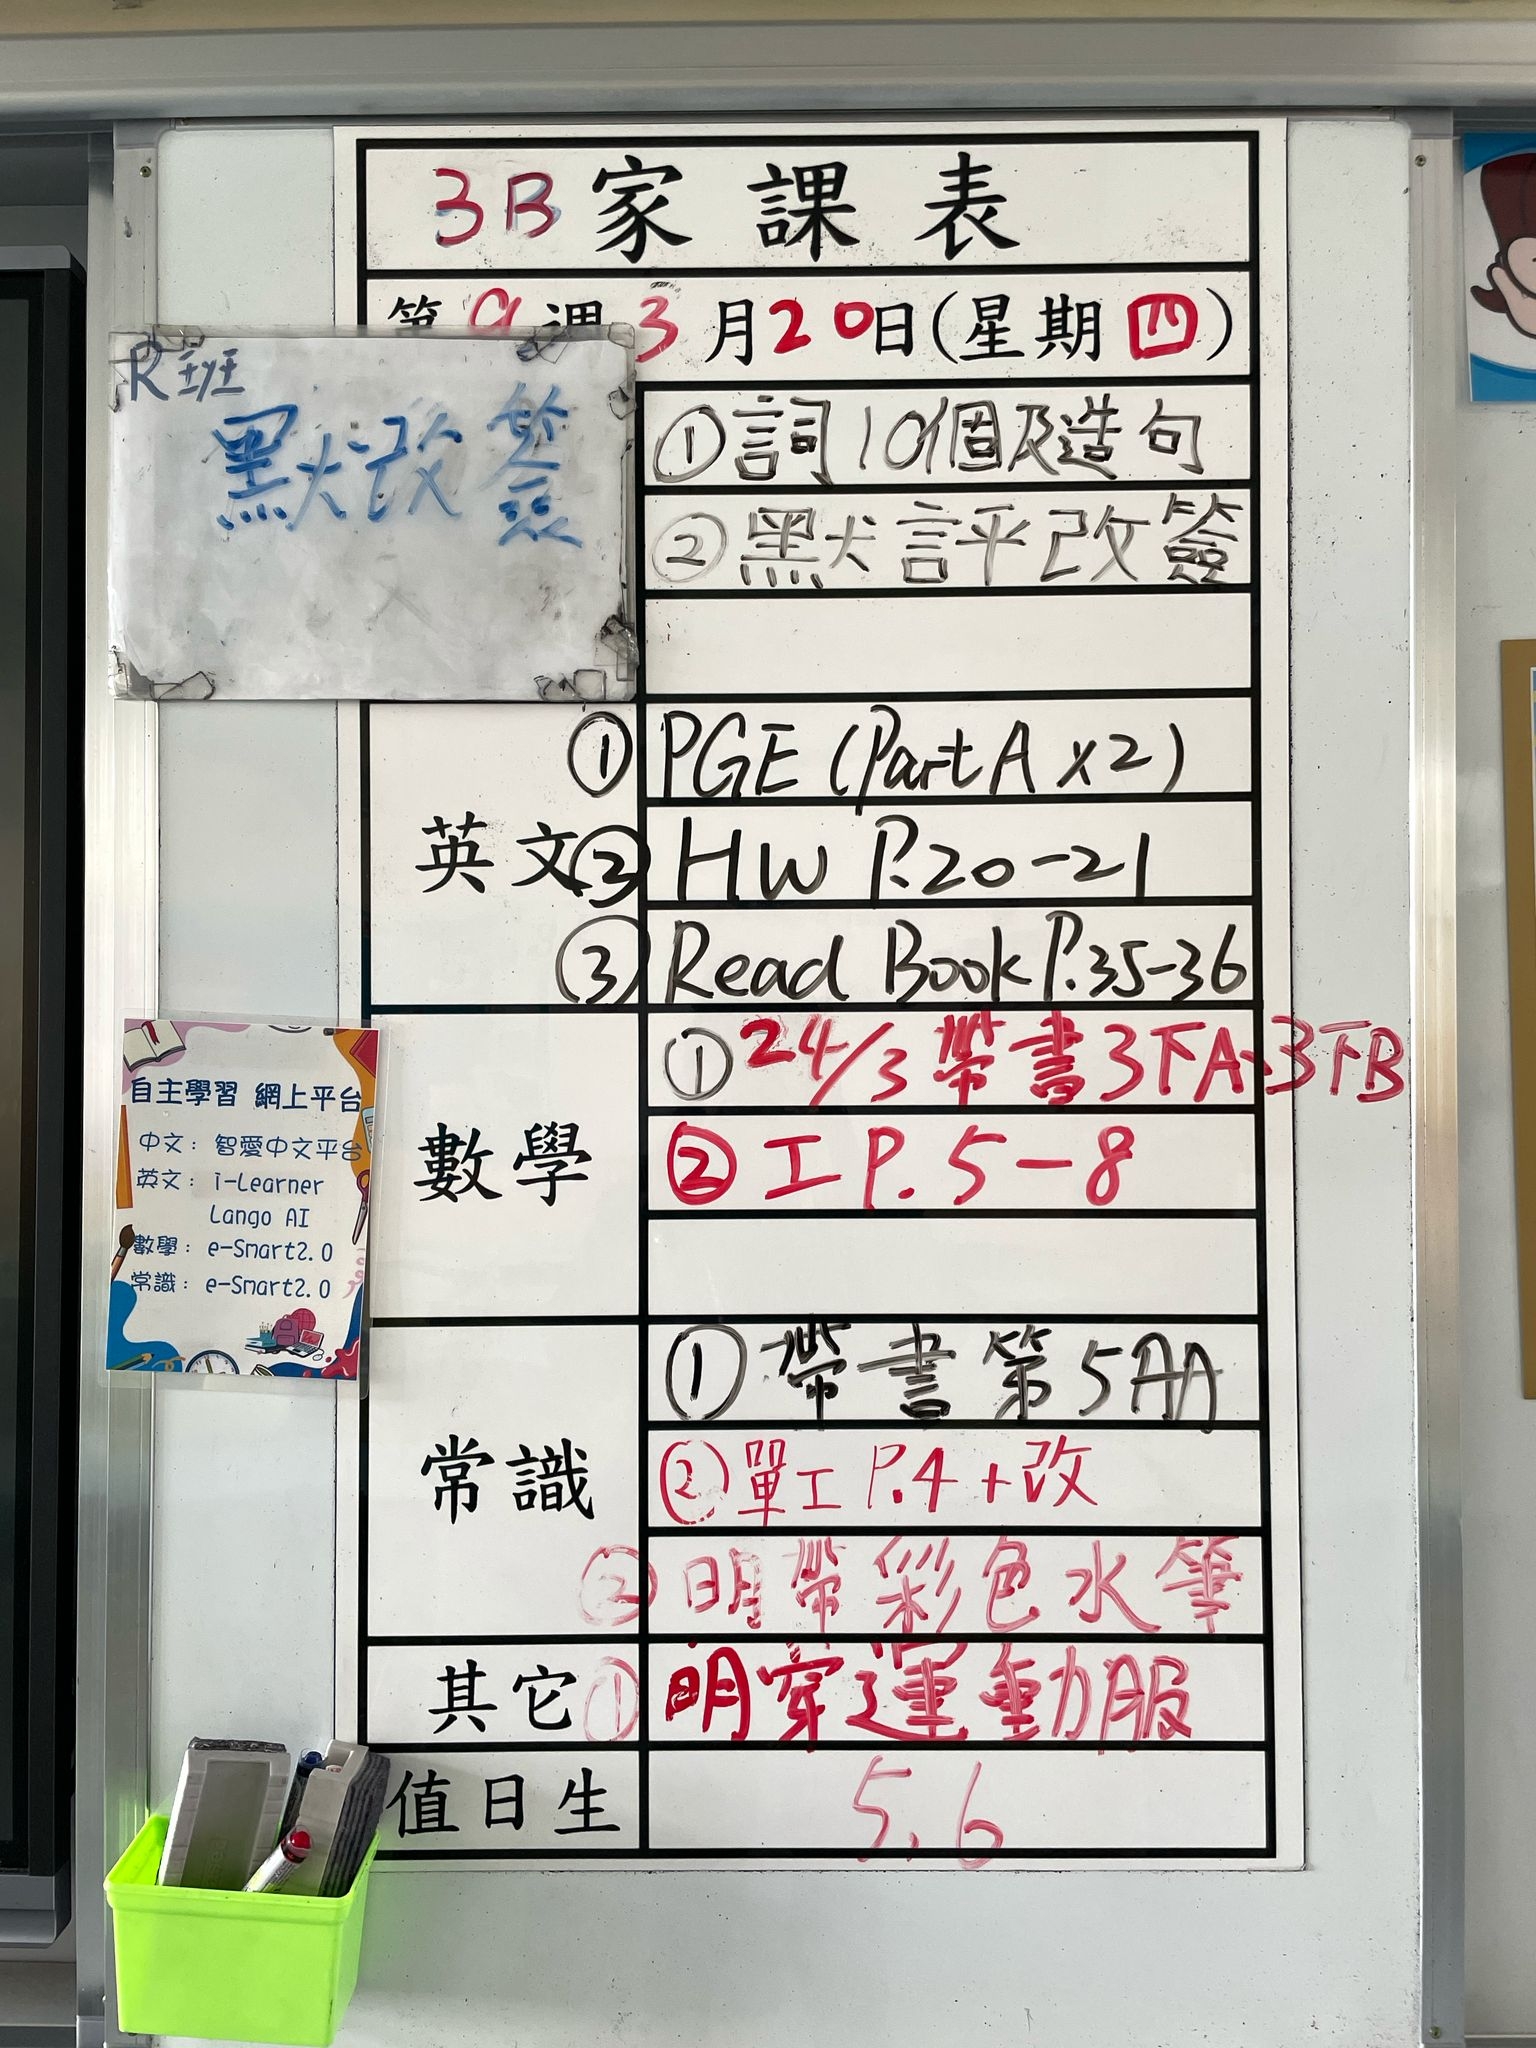 3B家課表
第9週3月20日(星期四)
R班
默改簽
①詞10個及造句
②默評改簽
英文
①PGE (Part A x2)
②HW P.20-21
③Read Book P.35-36
數學
①24/3帶書3下A、3下B
②工P.5-8
常識
①帶書第5AA
②單工P.4+改
③明帶彩色水筆
其它
①明穿運動服
值日生
5,6
自主學習 網上平台
中文：智愛中文平台
英文：i-Learner
Lango AI
數學：e-Smart2.0
常識：e-Smart2.0